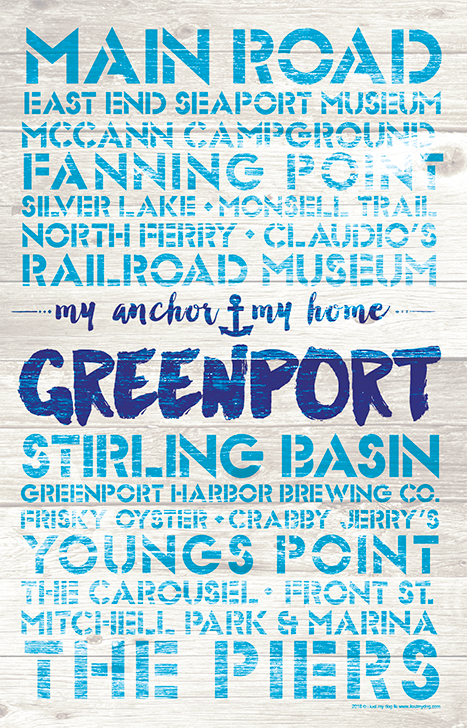 MAIN ROAD
EAST END SEAPORT MUSEUM
MCCANN CAMPGROUND
FANNING POINT
SILVER LAKE • MONSELL TRAIL
NORTH FERRY • CLAUDIO'S
RAILROAD MUSEUM
my anchor my home
GREENPORT
STIRLING BASIN
GREENPORT HARBOR BREWING CO.
FRISKY OYSTER • CRABBY JERRY'S
YOUNGS POINT
THE CAROUSEL • FRONT ST.
MITCHELL PARK & MARINA
THE PIERS